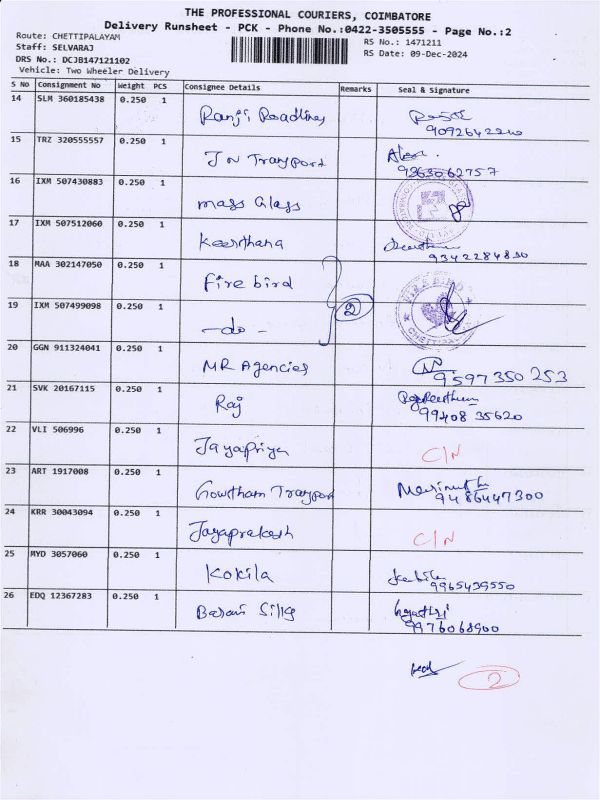 THE PROFESSIONAL COURIERS, COIMBATORE
Delivery Runsheet - PCK - Phone No.:0422-3505555 - Page No.:2
Route: CHETTIPALAYAM
RS No.: 1471211
Staff: SELVARAJ
RS Date: 09-Dec-2024
DRS No.: DCJB147121102
Vehicle: Two Wheeler Delivery
S No Consignment No Weight PCS Consignee Details Remarks Seal & Signature
14 SLM 360185438 0.250 1 Ranji Roadlines
15 TRZ 320555557 0.250 1 JN Transport
9363062757
16 IXM 507430883 0.250 1 Mass Glass
17 IXM 507512060 0.250 1 Keerthana
9342284830
18 MAA 302147050 0.250 1 Fire bird
2
19 IXM 507499098 0.250 1 -do-
20 GGN 911324041 0.250 1 MR Agencies
9597350253
21 SVK 20167115 0.250 1 Raj
99408 35620
22 VLI 506996 0.250 1 Jayapriya C/N
23 ART 1917008 0.250 1 Gowtham Transport
9486447300
24 KRR 30043094 0.250 1 Jayaprakash C/N
25 MYD 3057060 0.250 1 Kokila
9965439550
26 EDQ 12367283 0.250 1 Barani Silks
9976068900
2